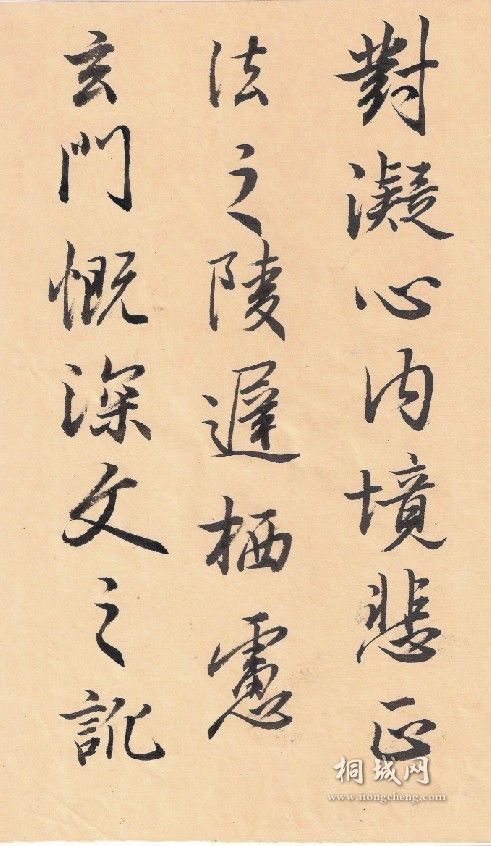 對凝心內境悲正
法之陵遲栖慮
玄門慨深文之訛
桐城网
www.itongcheng.com